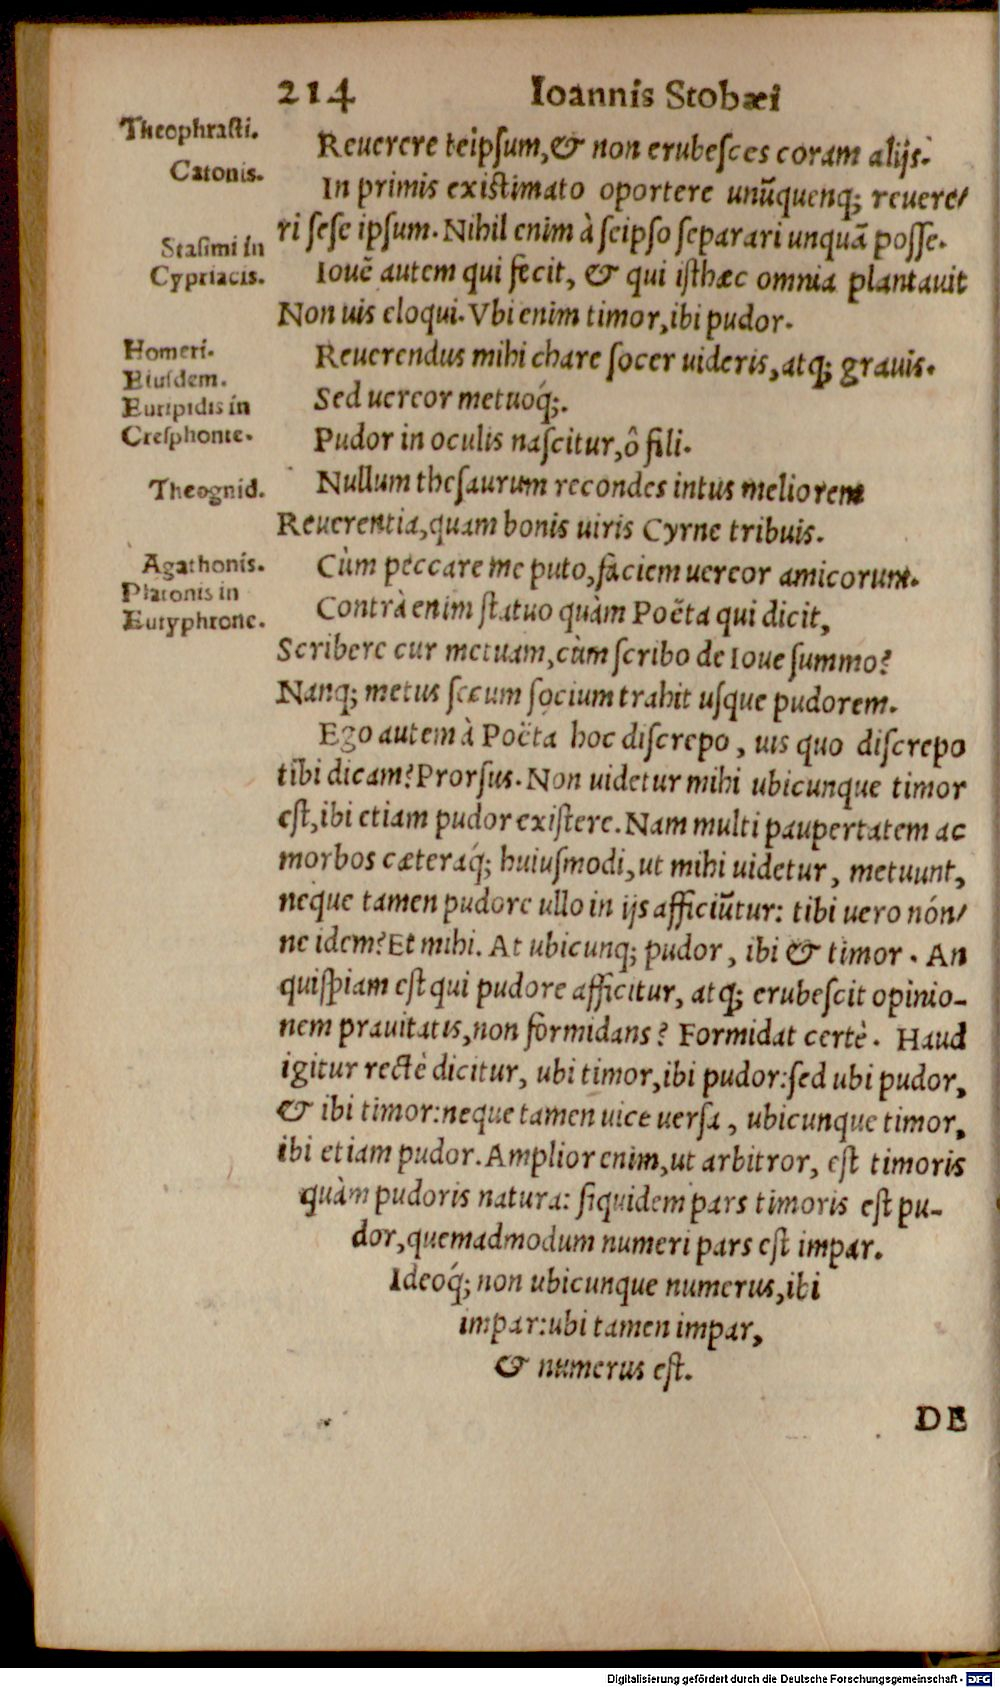 214 Ioannis Stobæi
Theophrasti.
Reuerere teipsum, & non erubesces coram alijs.
Catonis.
In primis existimato oportere unũquenq; reuere/
ri sese ipsum. Nihil enim à seipso separari unquã posse.
Stasimi in
Cypriacis.
Iouẽ autem qui fecit, & qui isthæc omnia plantauit
Non uis eloqui. Vbi enim timor, ibi pudor.
Homeri.
Reuerendus mihi chare socer uideris, atq; grauis.
Eiusdem.
Sed uereor metuoq́;.
Euripidis in
Cresphonte.
Pudor in oculis nascitur, ô fili.
Theognid.
Nullum thesaurum recondes intus meliorem
Reuerentia, quam bonis uiris Cyrne tribuis.
Agathonis.
Cùm peccare me puto, faciem uereor amicorum.
Platonis in
Eutyphrone.
Contrà enim statuo quàm Poëta qui dicit,
Scribere cur metuam, cùm scribo de Ioue summo?
Nanq; metus secum socium trahit usque pudorem.
Ego autem à Poëta hoc discrepo, uis quo discrepo
tibi dicam? Prorsus. Non uidetur mihi ubicunque timor
est, ibi etiam pudor existere. Nam multi paupertatem ac
morbos cæteraq́; huiusmodi, ut mihi uidetur, metuunt,
neque tamen pudore ullo in ijs afficiũtur: tibi uero nón/
ne idem? Et mihi. At ubicunq; pudor, ibi & timor. An
quispiam est qui pudore afficitur, atq; erubescit opinio-
nem prauitatis, non formidans? Formidat certè. Haud
igitur rectè dicitur, ubi timor, ibi pudor: sed ubi pudor,
& ibi timor: neque tamen uice uersa, ubicunque timor,
ibi etiam pudor. Amplior enim, ut arbitror, est timoris
quàm pudoris natura: siquidem pars timoris est pu-
dor, quemadmodum numeri pars est impar.
Ideoq́; non ubicunque numerus, ibi
impar: ubi tamen impar,
& numerus est.
DE
Digitalisierung gefördert durch die Deutsche Forschungsgemeinschaft - DFG